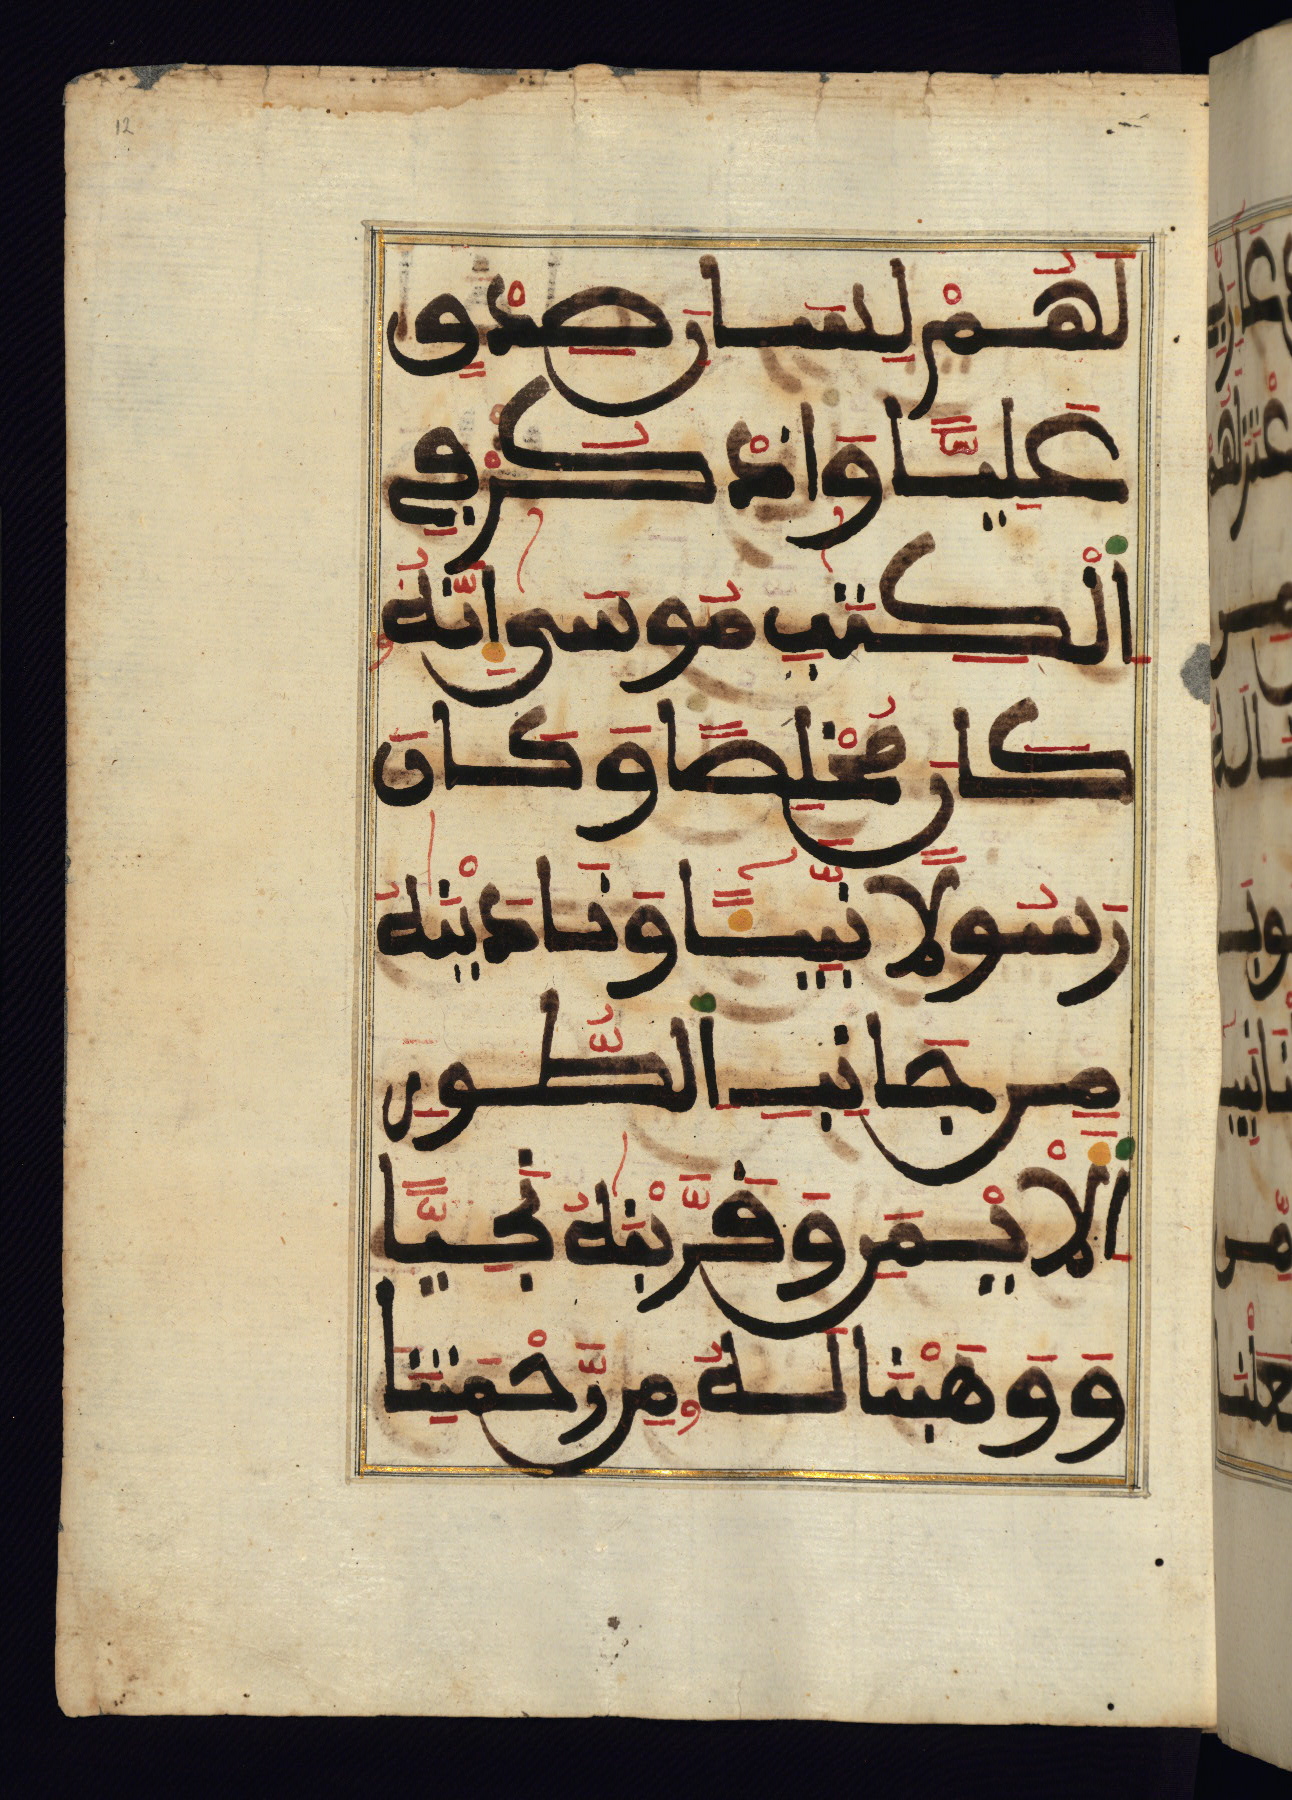 12
لَهُمْ لِسَانَ صِدْقٍ
عَلِيّٗا وَاذْكُرْ فِي
اِ۬لْكِتَٰبِ مُوسَىٰ إِنَّهُۥ
كَانَ مُخْلِصٗا وَكَانَ
رَسُولٗا نَّبِيٓـٔٗا وَنَٰدَيْنَٰهُ
مِن جَانِبِ اِ۬لطُّورِ
اِ۬لَايْمَنِ وَقَرَّبْنَٰهُ نَجِيّٗا
وَوَهَبْنَا لَهُۥ مِن رَّحْمَتِنَا